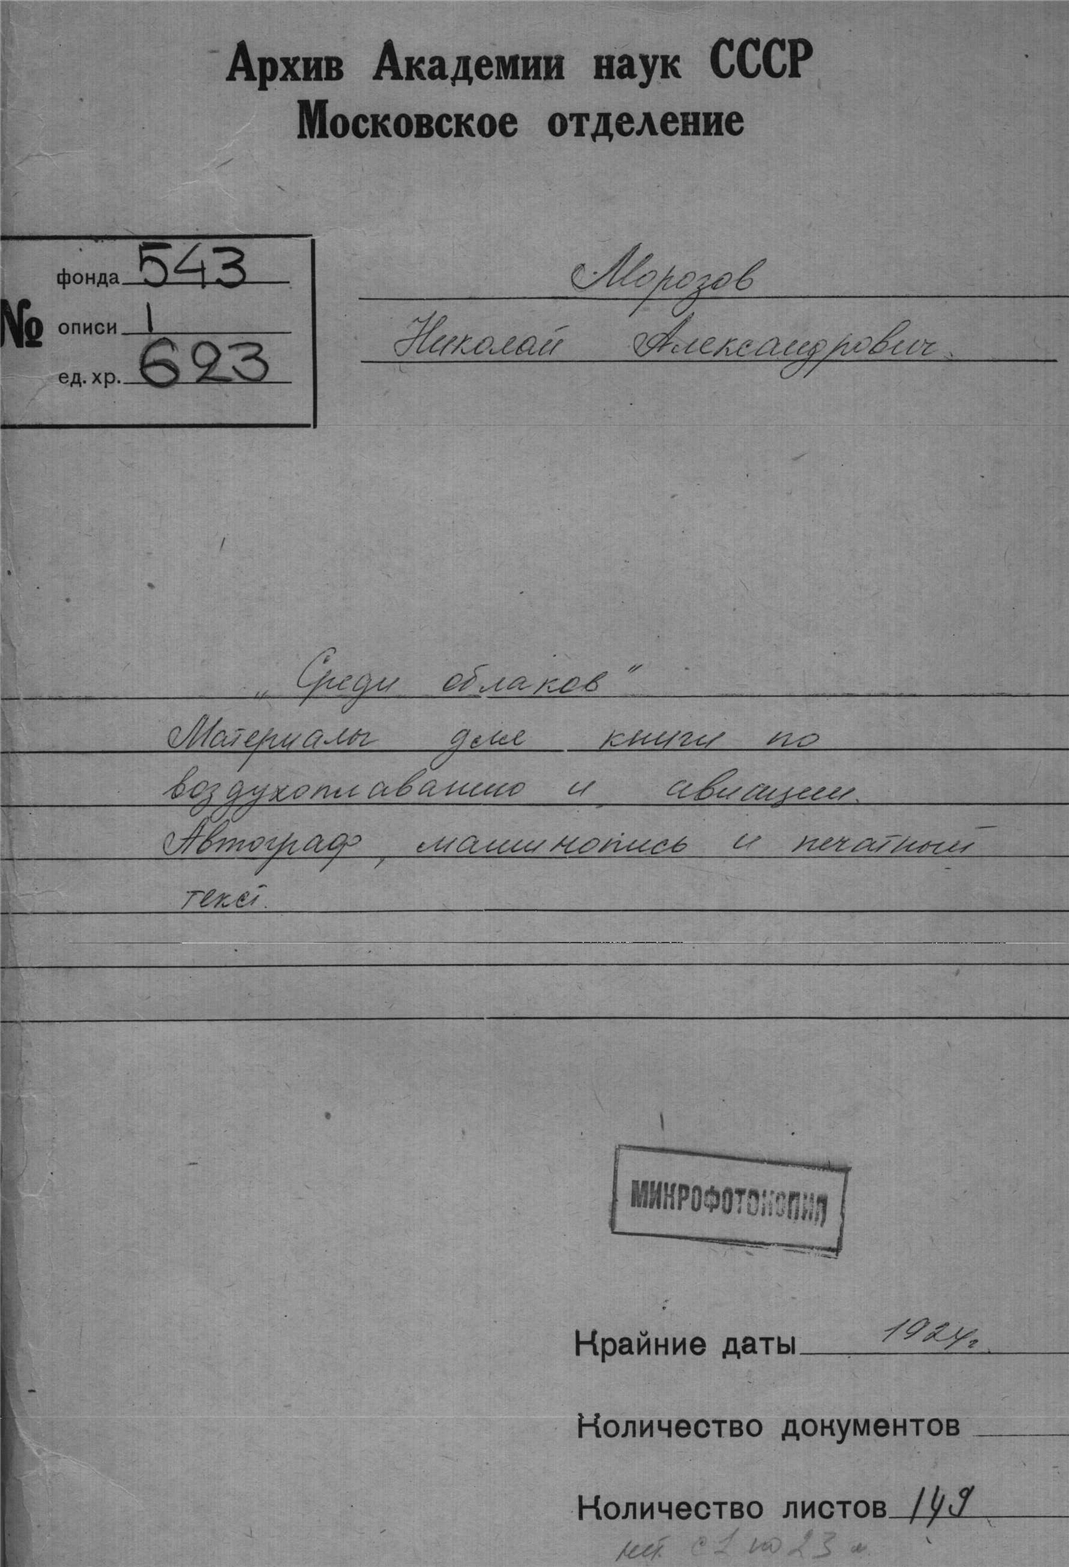 Архив Академии наук СССР
Московское отделение
№
фонда 543
описи 1
ед. хр. 623
Морозов
Николай Александрович.
„Среди облаков"
Материалы для книги по
воздухоплаванию и авиации.
Автограф, машинопись и печатный
текст.
МИКРОФОТОКОПИЯ
Крайние даты 1924г.
Количество документов
Количество листов 149
с 1 по 23 л.